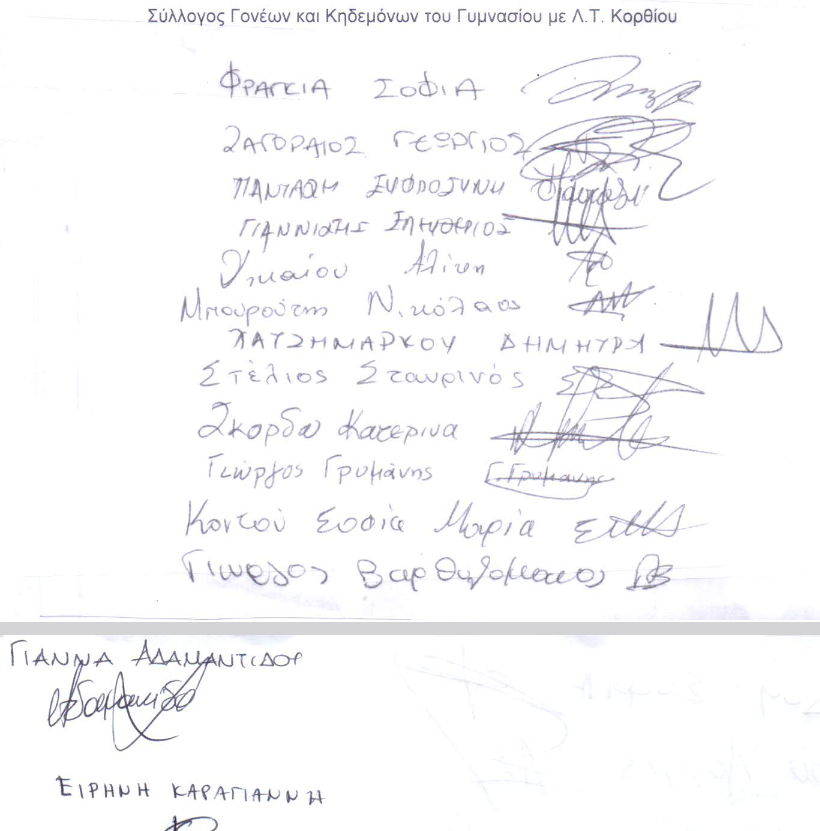 Σύλλογος Γονέων και Κηδεμόνων του Γυμνασίου με Λ.Τ. Κορθίου
ΦΡΑΓΚΙΑ ΣΟΦΙΑ
ΖΑΓΟΡΑΙΟΣ ΓΕΩΡΓΙΟΣ
ΠΑΝΤΑΖΗ ΕΥΦΡΟΣΥΝΗ
ΓΙΑΝΝΙΩΤΗΣ ΕΛΕΥΘΕΡΙΟΣ
Αλίκη
Μπουρούτης Νικόλαος
ΧΑΤΖΗΜΑΡΚΟΥ ΔΗΜΗΤΡΑ
Στέλιος Σταυρινός
Σκορδα Κατερινα
Γιώργος Γρυμάνης Γ.Γρυμανης
Κοντού Σοφία Μαρία
Γιωργος Βαρθολομαιος
ΓΙΑΝΝΑ ΑΔΑΜΑΝΤΙΔΟΥ
ΕΙΡΗΝΗ ΚΑΡΑΓΙΑΝΝΗ